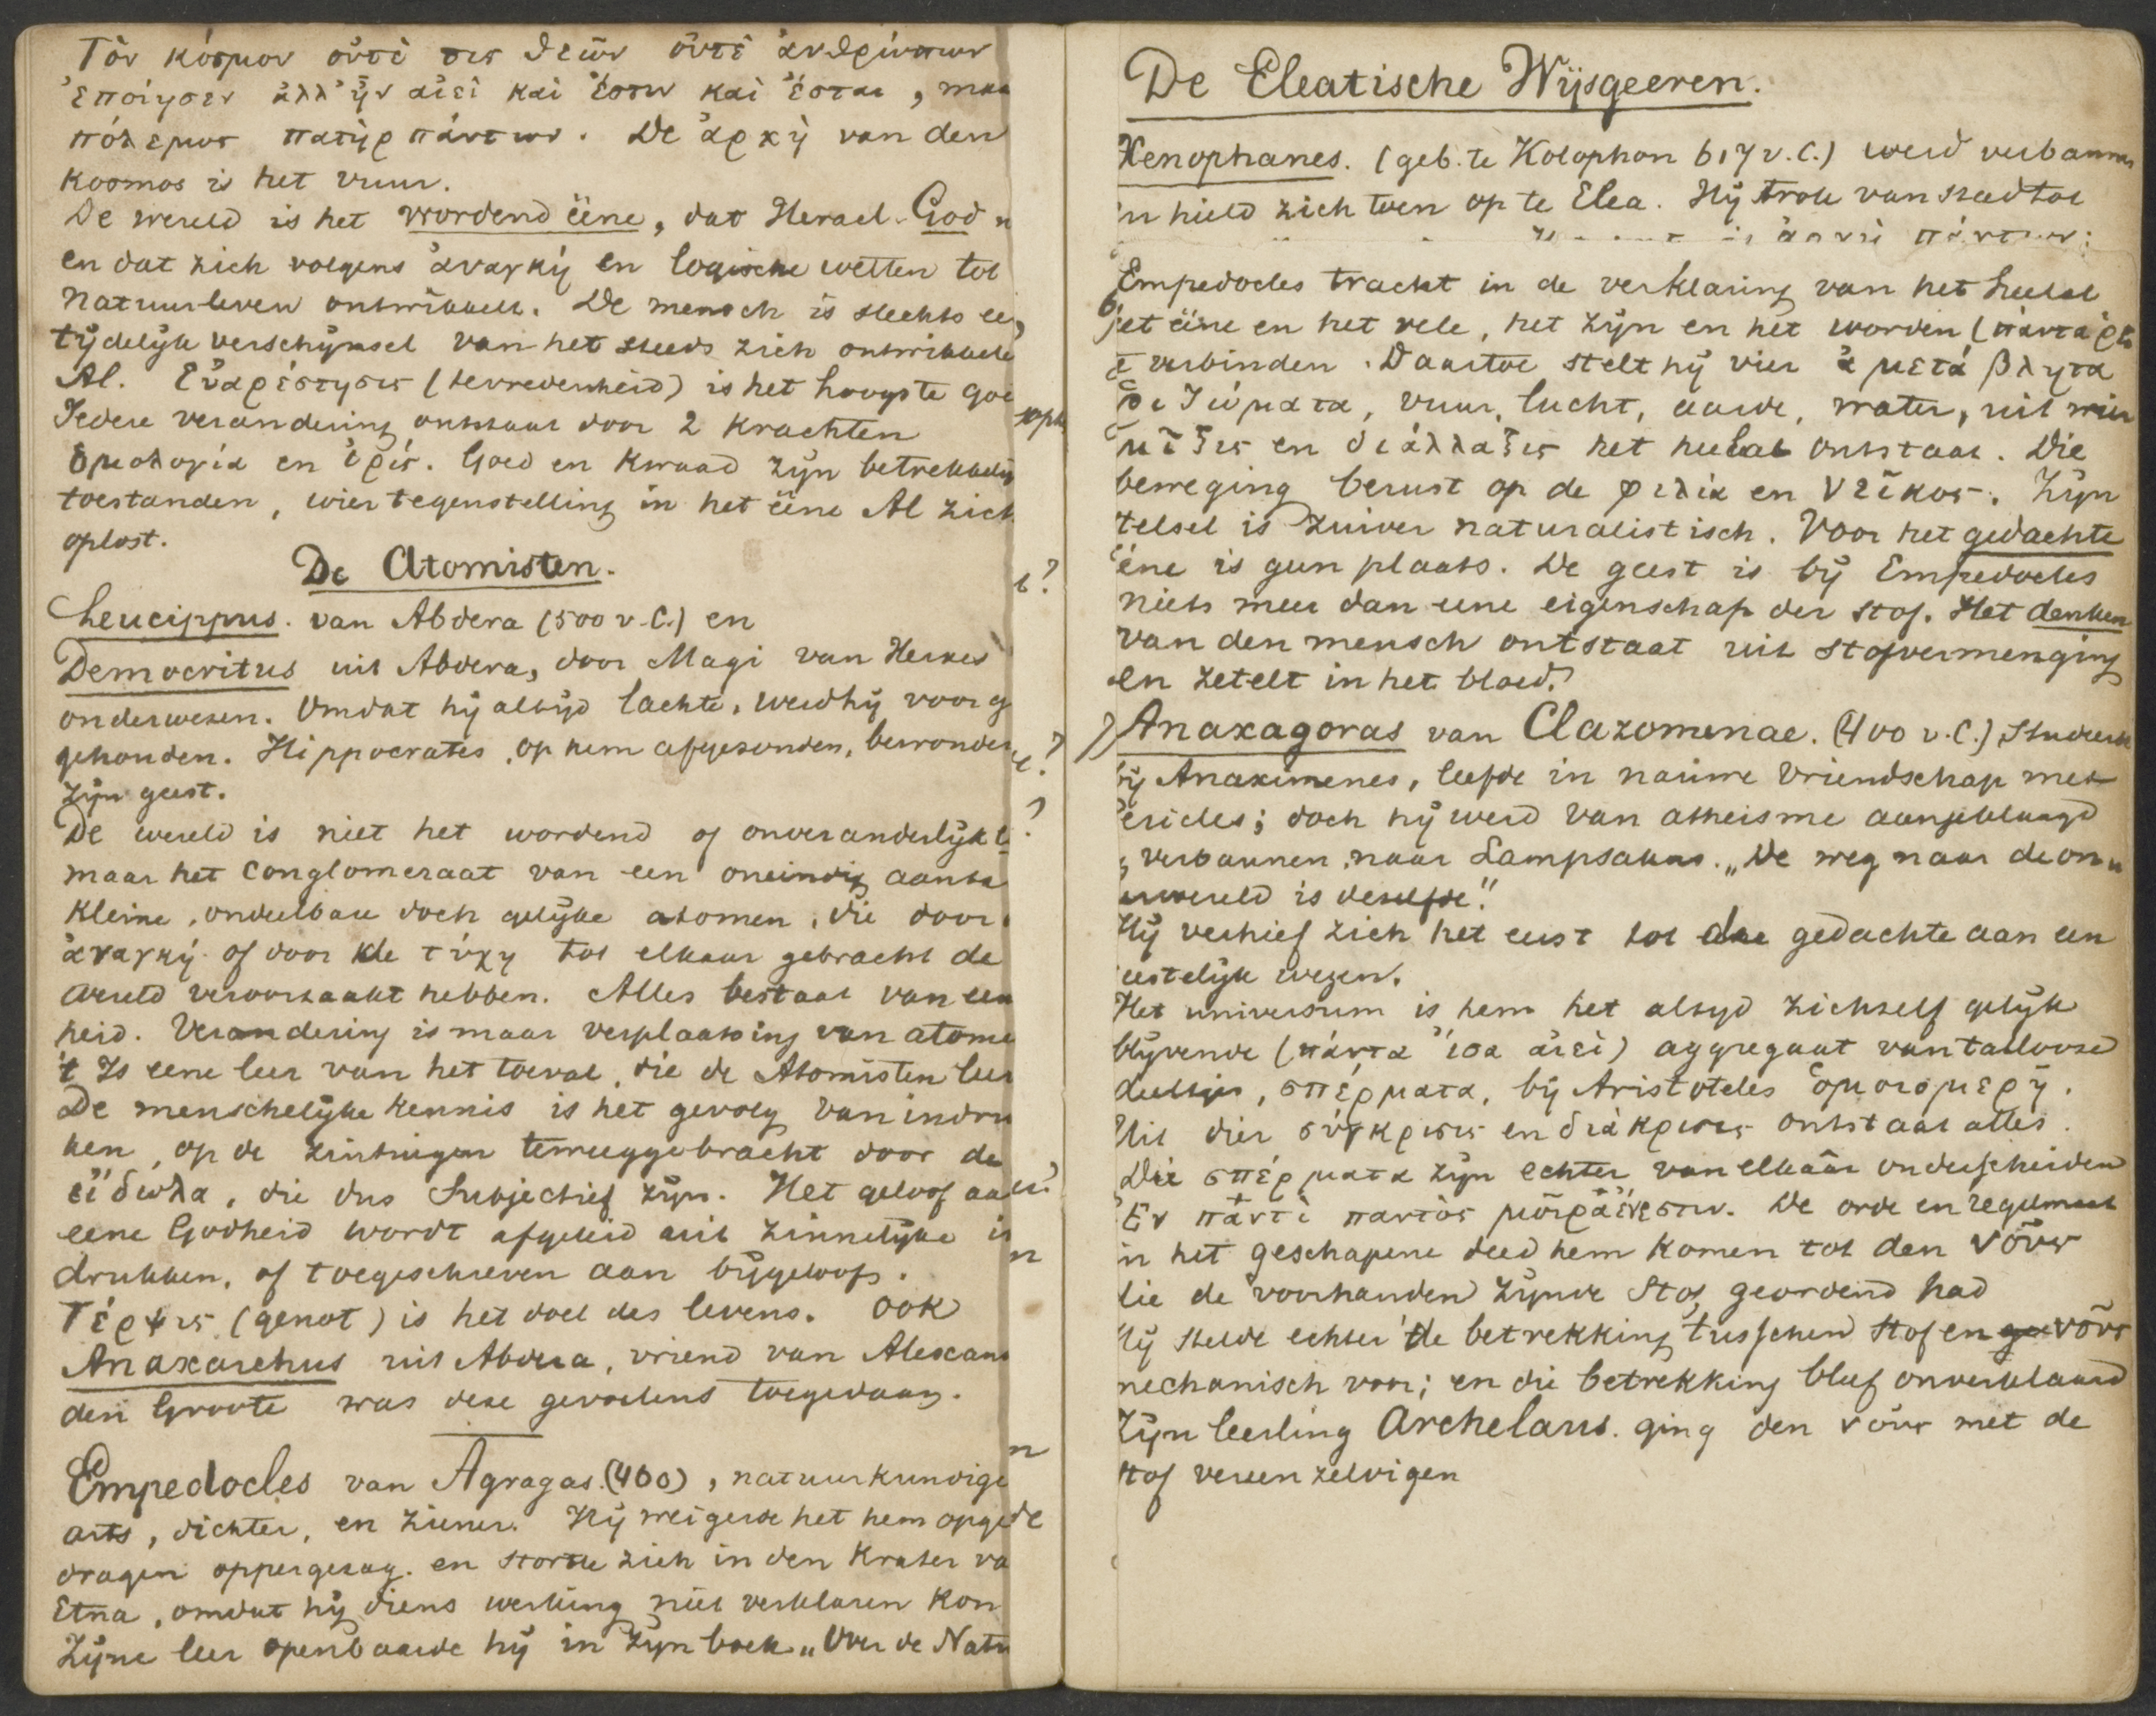 Τὸν κόσμον οὔτὲ τις θεῶν οὔτὲ ἀνθρώπων
ἐποίησεν ἀλλ' ἦν αἰεὶ καὶ ἔστιν καὶ ἔσται, maa
πόλεμος πατὴρ πάντων. De ἀρχὴ van den
Kosmos is het vuur.
De wereld is het wordend ééne, dat Heracl. God n
en dat zich volgens ἀναγκή en logische wetten tot
Natuurleven ontwikkelt. De mensch is slechts ee
tijdelijk verschijnsel van het steeds zich ontwikkele
Al. Εὐαρέστησις (tevredenheid) is het hoogste goe
Iedere verandering ontstaat door 2 Krachten
ὁμολογία en ἐρίς. Goed en Kwaad zijn betrekkelij
toestanden, wier tegenstelling in het ééne Al zich
oplost.
De Atomisten.
Leucippus. van Abdera (500 v.C.) en
Democritus uit Abdera, door Magi van Herxes
onderwezen. Omdat hij altijd lachte, werd hij voor g
gehouden. Hippocrates, op hem afgezonden, bewonder
zijn geest.
De wereld is niet het wordend of onveranderlijk
maar het Conglomeraat van een oneindig aanta
Kleine, ondeelbare doch gelijke atomen, die door
ἀναγκή of door de τύχη tot elkaar gebracht de
wereld veroorzaakt hebben. Alles bestaat van een
heid. Verandering is maar verplaatsing van atome
't Is eene leer van het toeval, die de Atomisten leer
De menschelijke Kennis is het gevolg van indru
ken, op de zintuigen teweeggebracht door de
εἴδωλα, die dus Subjectief zijn. Het geloof aa
eene Godheid wordt afgeleid uit zinnelijke in
drukken, of toegeschreven aan bijgeloof.
Τέρψις (genot) is het doel des levens. Ook
Anaxarchus uit Abdera, vriend van Alexand
den Groote was deze gevoelens toegedaan.
Empedocles van Agragas (460), natuurkundige
arts, dichter, en ziener. Hij weigerde het hem opge
dragen oppergezag. en stortte zich in den Krater va
Etna, omdat hij diens werking niet verklaren Kon
Zijne leer openbaarde hij in zijn boek „Over de Natu
De Eleatische Wijsgeeren.
Xenophanes. (geb. te Kolophon 617 v.C.) werd verbannen
en hield zich toen op te Elea. Hij trok van stad tot
Empedocles tracht in de verklaring van het heelal
het ééne en het vele, het zijn en het worden (πάντα ῥε
te verbinden. Daartoe stelt hij vier ἀμετάβλητα
ῥιζώματα, vuur, lucht, aarde, water, uit wier
μῖξις en διάλλαξις het heelal ontstaat. Die
beweging berust op de φιλία en νεῖκος. Zijn
telsel is zuiver naturalistisch. Voor het gedachte
ééne is geen plaats. De geest is bij Empedocles
niets meer dan eene eigenschap der stof. Het denken
van den mensch ontstaat uit stofvermenging
en zetelt in het bloed.
Anaxagoras van Clazomenae. (400 v.C.) Studeerde
bij Anaximenes, leefde in nauwe vriendschap met
Pericles; doch hij werd van atheisme aangeklaagd
verbannen naar Lampsakus. „De weg naar de on
wereld is dezelfde".
Hij verhief zich het eerst tot de gedachte aan een
eestelijk wezen.
Het universum is hem het altijd zichzelf gelijk
blijvende (πάντα ἴσα ἀιεί) aggregaat van talloose
deeltjes, σπέρματα, bij Aristoteles ὁμοιομερῆ.
Uit dier σύγκρισις en διάκρισις ontstaat alles.
Die σπέρματα zijn echter van elkaâr onderscheiden
Ἐν παντὶ παντὸς μοῖρα ἔνεστιν. De orde en regelmaat
in het geschapene deed hem Komen tot den νοῦς
die de voorhanden zijnde Stof, geordend had
Hij stelde echter de betrekking tusschen Stof en νοῦς
mechanisch voor; en die betrekking bleef onverklaard
Zijn leerling Archelaus. ging den νοῦς met de
Stof vereenzelvigen